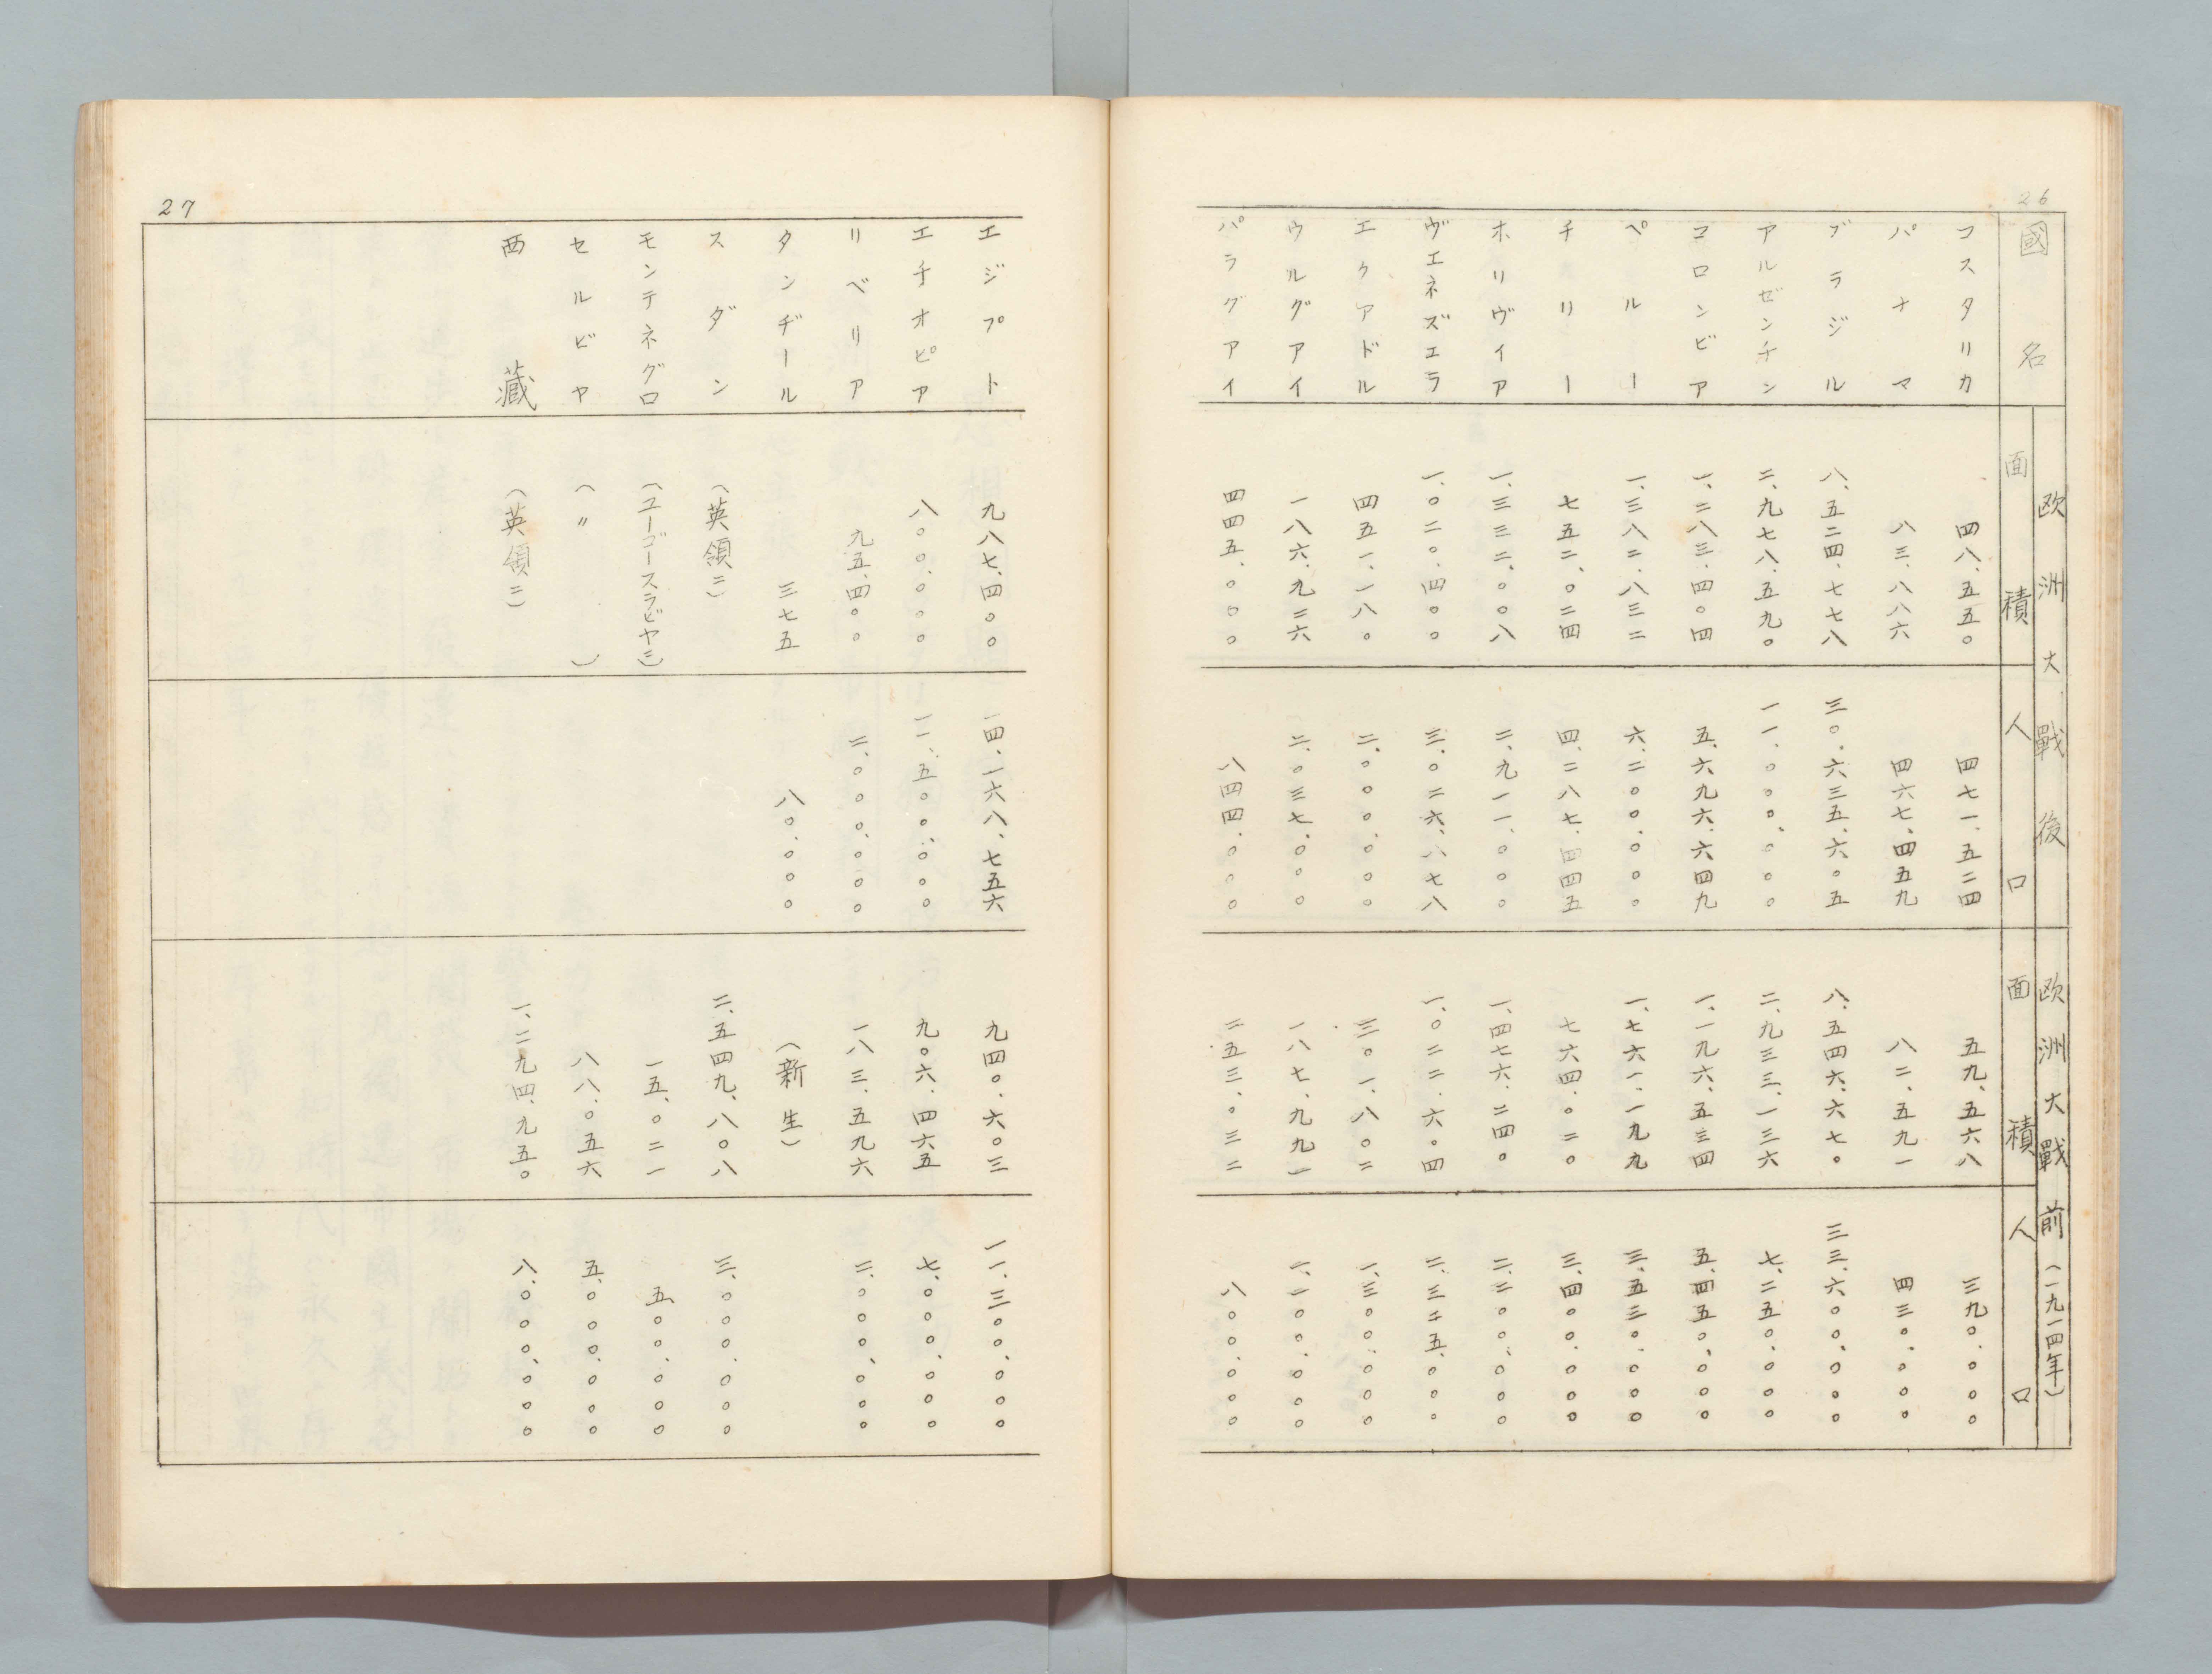 26
國名
欧洲大戰後
面積
人口
欧洲大戰前（一九一四年）
面積
人口
コスタリカ 四八、五五〇 四七一、五二四 五九、五六八 三九〇、〇〇〇
パナマ 八三、八八六 四六七、四五九 八二、五九一 四三〇、〇〇〇
ブラジル 八、五二四、七七八 三〇、六三五、六〇五 八、五四六、六七〇 三三、六〇〇、〇〇〇
アルゼンチン 二、九七八、五九〇 一一、〇〇〇、〇〇〇 二、九三三、一三六 七、二五〇、〇〇〇
コロンビア 一、二八三、四〇四 五、六九六、六四九 一、一九六、五三四 五、四五〇、〇〇〇
ペルー 一、三八二、八三二 六、二〇〇、〇〇〇 一、七六一、一九九 三、五三〇、〇〇〇
チリー 七五二、〇二四 四、二八七、四四五 七六四、〇二〇 三、四〇〇、〇〇〇
ホリヴイア 一、三三二、〇〇八 二、九一一、〇〇〇 一、四七六、二四〇 二、二〇〇、〇〇〇
ヴエネズエラ 一、〇二〇、四〇〇 三、〇二六、八七八 一、〇二二、六〇四 二、三二五、〇〇〇
エクアドル 四五一、一八〇 二、〇〇〇、〇〇〇 三〇一、八〇二 一、三〇〇、〇〇〇
ウルグアイ 一八六、九二六 二、〇三七、〇〇〇 一八七、九九一 一、一〇〇、〇〇〇
パラグアイ 四四五、〇〇〇 八四四、〇〇〇 二五三、〇三二 八〇〇、〇〇〇
27
エジプト 九八七、四〇〇 一四、一六八、七五六 九四〇、六〇三 一一、三〇〇、〇〇〇
エチオピア 八〇〇、〇〇〇 一一、五〇〇、〇〇〇 九〇六、四六五 七、〇〇〇、〇〇〇
リベリア 九五、四〇〇 二、〇〇〇、〇〇〇 一八三、五九六 二、〇〇〇、〇〇〇
タンヂール 三七五 八〇、〇〇〇 （新生）
スダン （英領ニ） 二、五四九、八〇八 三、〇〇〇、〇〇〇
モンテネグロ （ユーゴースラビヤニ） 一五、〇二一 五〇〇、〇〇〇
セルビヤ （〃） 八八、〇五六 五、〇〇〇、〇〇〇
西藏 （英領ニ） 一、二九四、九五〇 八、〇〇〇、〇〇〇